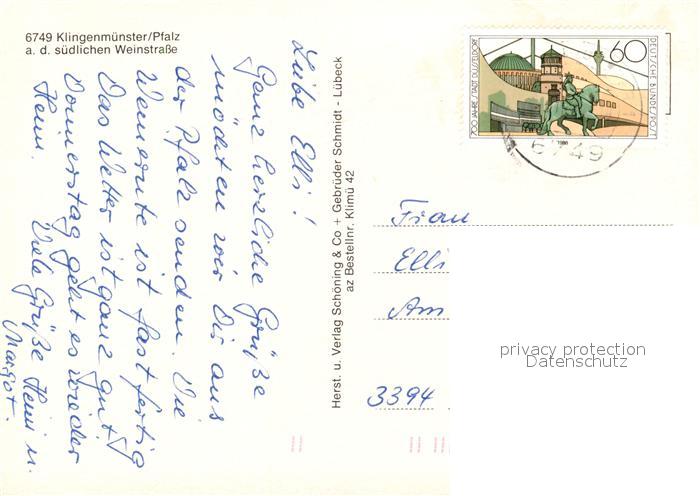 6749 Klingenmünster/Pfalz
a. d. südlichen Weinstraße
Liebe Elli!
Ganz herzliche Grüße
möchten wir Dir aus
der Pfalz senden. Die
Weinernte ist fast fertig
Das Wetter ist ganz gut
Donnerstag geht es wieder
Heim.
Viele Grüße Heini u.
Margot.
Herst. u. Verlag Schöning & Co + Gebrüder Schmidt - Lübeck
az Bestellnr. Klimü 42
700 JAHRE STADT DÜSSELDORF
60
DEUTSCHE BUNDESPOST
6749
Frau
Elli
Am
3394
privacy protection
Datenschutz